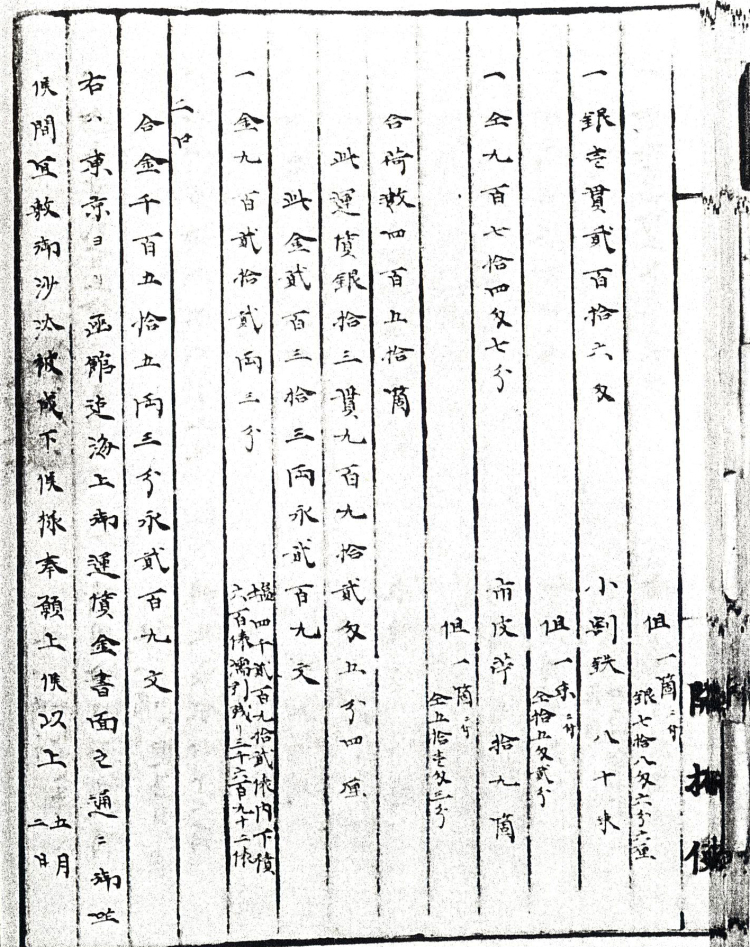 但 一箇ニ付
銀七拾八匁六分六厘
一銀壱貫貳百拾六匁 小割鉄 八十束
但 一束ニ付
仝拾五匁貳分
一仝九百七拾四匁七分 拾九箇
但 一箇ニ付
仝五拾壱匁三分
合荷数四百五拾箇
此運賃銀拾三貫九百九拾貳匁五分四厘
此金貳百三拾三両永貳百九文
一金九百貳拾貳両三分 塩四千貳百九拾貳俵内下積
六百俵濡引残り三千六百九十二俵
二口
合金千百五拾五両三分永貳百九文
右ハ東京ヨリ函館迄海上御運賃金書面之通ニ御座
候間宜敷御沙汰被成下候様奉願上候以上 五月
二日
開拓使